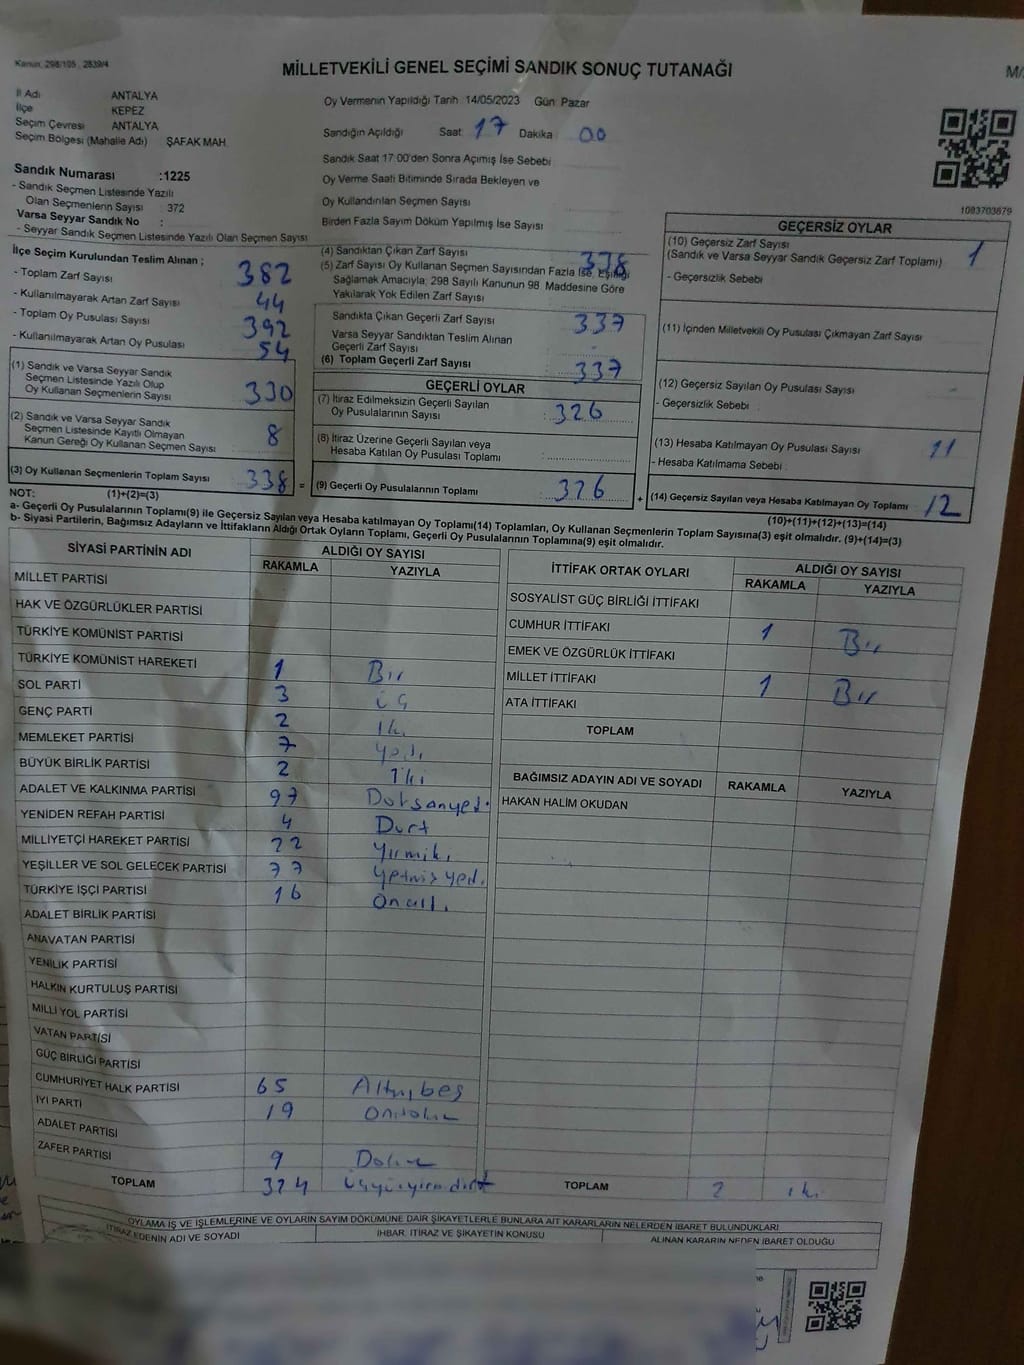 Kanun, 298/105, 2839/4
MİLLETVEKİLİ GENEL SEÇİMİ SANDIK SONUÇ TUTANAĞI
İl Adı ANTALYA
İlçe KEPEZ
Seçim Çevresi ANTALYA
Seçim Bölgesi (Mahalle Adı) ŞAFAK MAH.
Sandık Numarası :1225
- Sandık Seçmen Listesinde Yazılı
Olan Seçmenlerin Sayısı : 372
Varsa Seyyar Sandık No :
- Seyyar Sandık Seçmen Listesinde Yazılı Olan Seçmen Sayısı
Oy Vermenin Yapıldığı Tarih: 14/05/2023 Gün: Pazar
Sandığın Açıldığı Saat: 17 Dakika 00
Sandık Saat 17:00'den Sonra Açımış İse Sebebi
Oy Verme Saati Bitiminde Sırada Bekleyen ve
Oy Kullandırılan Seçmen Sayısı
Birden Fazla Sayım Döküm Yapılmış İse Sayısı
1083703679
İlçe Seçim Kurulundan Teslim Alınan ;
- Toplam Zarf Sayısı 382
- Kullanılmayarak Artan Zarf Sayısı 44
- Toplam Oy Pusulası Sayısı 392
- Kullanılmayarak Artan Oy Pusulası 54
(1) Sandık ve Varsa Seyyar Sandık
Seçmen Listesinde Yazılı Olup
Oy Kullanan Seçmenlerin Sayısı 330
(2) Sandık ve Varsa Seyyar Sandık
Seçmen Listesinde Kayıtlı Olmayan
Kanun Gereği Oy Kullanan Seçmen Sayısı 8
(3) Oy Kullanan Seçmenlerin Toplam Sayısı 338 =
(4) Sandıktan Çıkan Zarf Sayısı 338
(5) Zarf Sayısı Oy Kullanan Seçmen Sayısından Fazla İse, Eşitliği
Sağlamak Amacıyla, 298 Sayılı Kanunun 98. Maddesine Göre
Yakılarak Yok Edilen Zarf Sayısı
Sandıkta Çıkan Geçerli Zarf Sayısı 337
Varsa Seyyar Sandıktan Teslim Alınan
Geçerli Zarf Sayısı -
(6) Toplam Geçerli Zarf Sayısı 337
GEÇERLİ OYLAR
(7) İtiraz Edilmeksizin Geçerli Sayılan
Oy Pusulalarının Sayısı : 326
(8) İtiraz Üzerine Geçerli Sayılan veya
Hesaba Katılan Oy Pusulası Toplamı :
(9) Geçerli Oy Pusulalarının Toplamı : 326 +
GEÇERSİZ OYLAR
(10) Geçersiz Zarf Sayısı 1
(Sandık ve Varsa Seyyar Sandık Geçersiz Zarf Toplamı)
- Geçersizlik Sebebi
(11) İçinden Milletvekili Oy Pusulası Çıkmayan Zarf Sayısı
(12) Geçersiz Sayılan Oy Pusulası Sayısı -
- Geçersizlik Sebebi
(13) Hesaba Katılmayan Oy Pusulası Sayısı 11
- Hesaba Katılmama Sebebi :
(14) Geçersiz Sayılan veya Hesaba Katılmayan Oy Toplamı 12
NOT: (1)+(2)=(3) (10)+(11)+(12)+(13)=(14)
a- Geçerli Oy Pusulalarının Toplamı(9) ile Geçersiz Sayılan veya Hesaba katılmayan Oy Toplamı(14) Toplamları, Oy Kullanan Seçmenlerin Toplam Sayısına(3) eşit olmalıdır. (9)+(14)=(3)
b- Siyasi Partilerin, Bağımsız Adayların ve İttifakların Aldığı Ortak Oyların Toplamı, Geçerli Oy Pusulalarının Toplamına(9) eşit olmalıdır.
SİYASİ PARTİNİN ADI ALDIĞI OY SAYISI
RAKAMLA YAZIYLA
MİLLET PARTİSİ
HAK VE ÖZGÜRLÜKLER PARTİSİ
TÜRKİYE KOMÜNİST PARTİSİ
TÜRKİYE KOMÜNİST HAREKETİ 1 Bir
SOL PARTİ 3 üç
GENÇ PARTİ 2 İki
MEMLEKET PARTİSİ 7 yedi
BÜYÜK BİRLİK PARTİSİ 2 İki
ADALET VE KALKINMA PARTİSİ 97 Doksanyedi
YENİDEN REFAH PARTİSİ 4 Dört
MİLLİYETÇİ HAREKET PARTİSİ 22 yirmiki
YEŞİLLER VE SOL GELECEK PARTİSİ 77 yetmişyedi
TÜRKİYE İŞÇİ PARTİSİ 16 onaltı
ADALET BİRLİK PARTİSİ
ANAVATAN PARTİSİ
YENİLİK PARTİSİ
HALKIN KURTULUŞ PARTİSİ
MİLLİ YOL PARTİSİ
VATAN PARTİSİ
GÜÇ BİRLİĞİ PARTİSİ
CUMHURİYET HALK PARTİSİ 65 Altmışbeş
İYİ PARTİ 19 Ondokuz
ADALET PARTİSİ
ZAFER PARTİSİ 9 Dokuz
TOPLAM 324 üçyüzyirmidört
İTTİFAK ORTAK OYLARI ALDIĞI OY SAYISI
RAKAMLA YAZIYLA
SOSYALİST GÜÇ BİRLİĞİ İTTİFAKI
CUMHUR İTTİFAKI 1 Bir
EMEK VE ÖZGÜRLÜK İTTİFAKI
MİLLET İTTİFAKI 1 Bir
ATA İTTİFAKI
TOPLAM
BAĞIMSIZ ADAYIN ADI VE SOYADI RAKAMLA YAZIYLA
HAKAN HALİM OKUDAN
TOPLAM 2 iki
OYLAMA İŞ VE İŞLEMLERİNE VE OYLARIN SAYIM DÖKÜMÜNE DAİR ŞİKAYETLERLE BUNLARA AİT KARARLARIN NELERDEN İBARET BULUNDUKLARI
İTİRAZ EDENİN ADI VE SOYADI İHBAR, İTİRAZ VE ŞİKAYETİN KONUSU ALINAN KARARIN NEDEN İBARET OLDUĞU